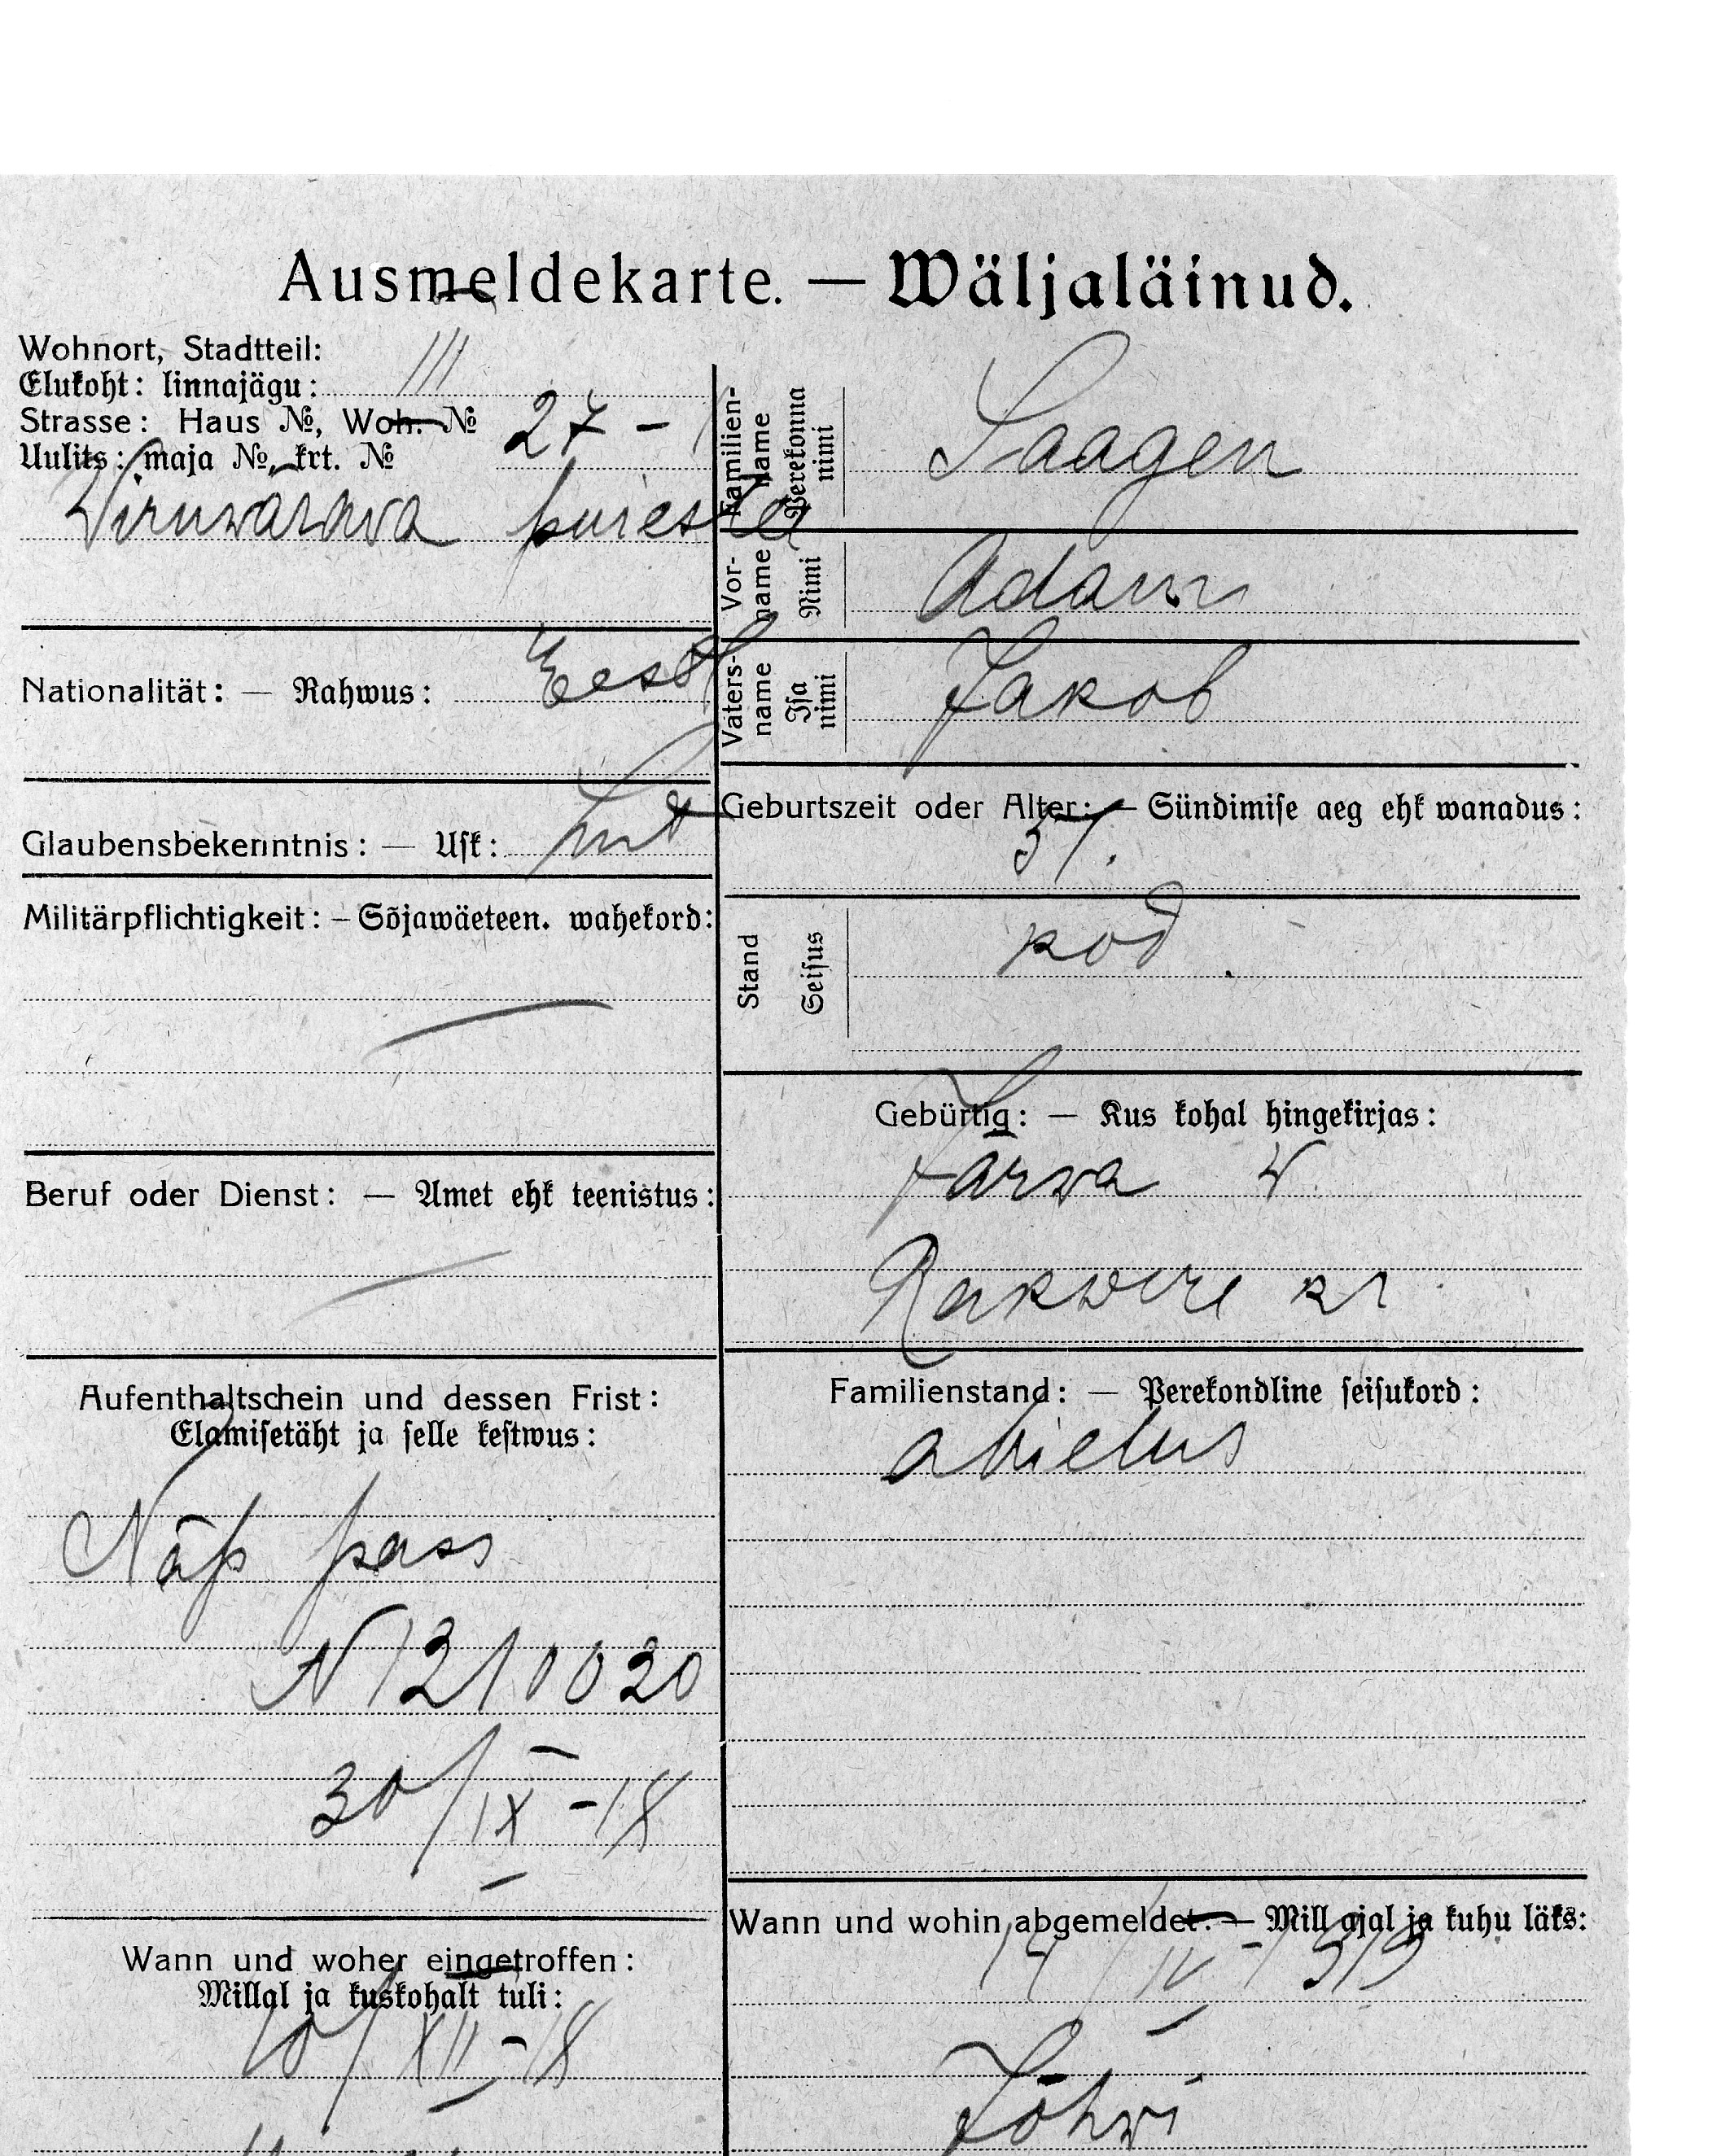 Ausmeldekarte. — Wäljaläinud.
Wohnort, Stadtteil:
Elukoht: linnajägu: III
Strasse: Haus №, Woh. №
Uulits: maja №, krt. № 27 - 1
Wiruwärawa puiestee
Nationalität: — Rahwus: Eesti
Glaubensbekenntnis: — Usk: Lut
Militärpflichtigkeit: – Sõjawäeteen. wahekord:
Beruf oder Dienst: — Amet ehk teenistus:
Aufenthaltschein und dessen Frist:
Elamisetäht ja selle kestwus:
Näp pass
N 1210020
30/IX - 18
Wann und woher eingetroffen:
Millal ja kuskohalt tuli:
10/XII - 18
Familien-
name
Perekonna
nimi
Saagen
Vor-
name
Nimi
Adam
Vaters-
name
Isa
nimi
Jakob
Geburtszeit oder Alter: — Sündimise aeg ehk wanadus:
37.
Stand
Seisus
kod.
Gebürtig: — Kus kohal hingekirjas:
Järwa w.
Rakwere kr
Familienstand: — Perekondline seisukord:
abielus
Wann und wohin abgemeldet: — Mill ajal ja kuhu läks:
14/IV - 1919
Jõhwi